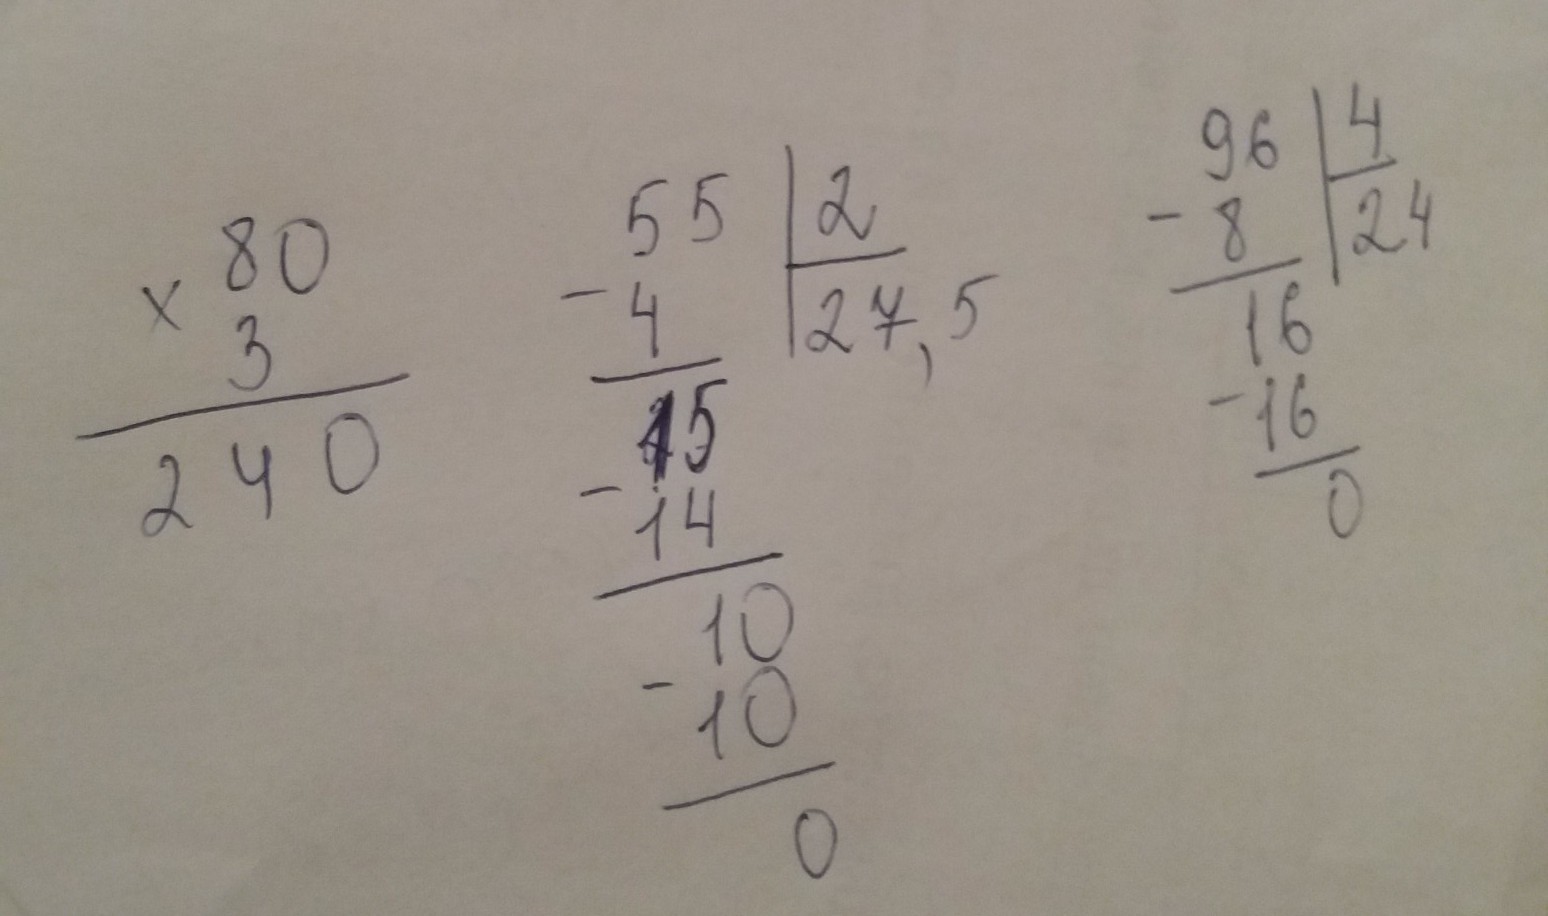 80
× 3
240
55 | 2
- 4 | 27,5
15
- 14
10
- 10
0
96 | 4
- 8 | 24
16
- 16
0